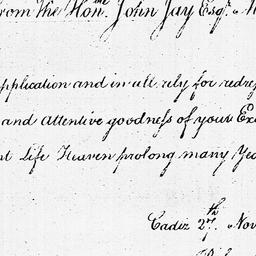 rom the Hon.m John Jay Esq.r
pplication and in all rely for redre
and attentive goodness of your Ex
nt Life Heaven prolong many Yea
Cadiz 27.th Nov